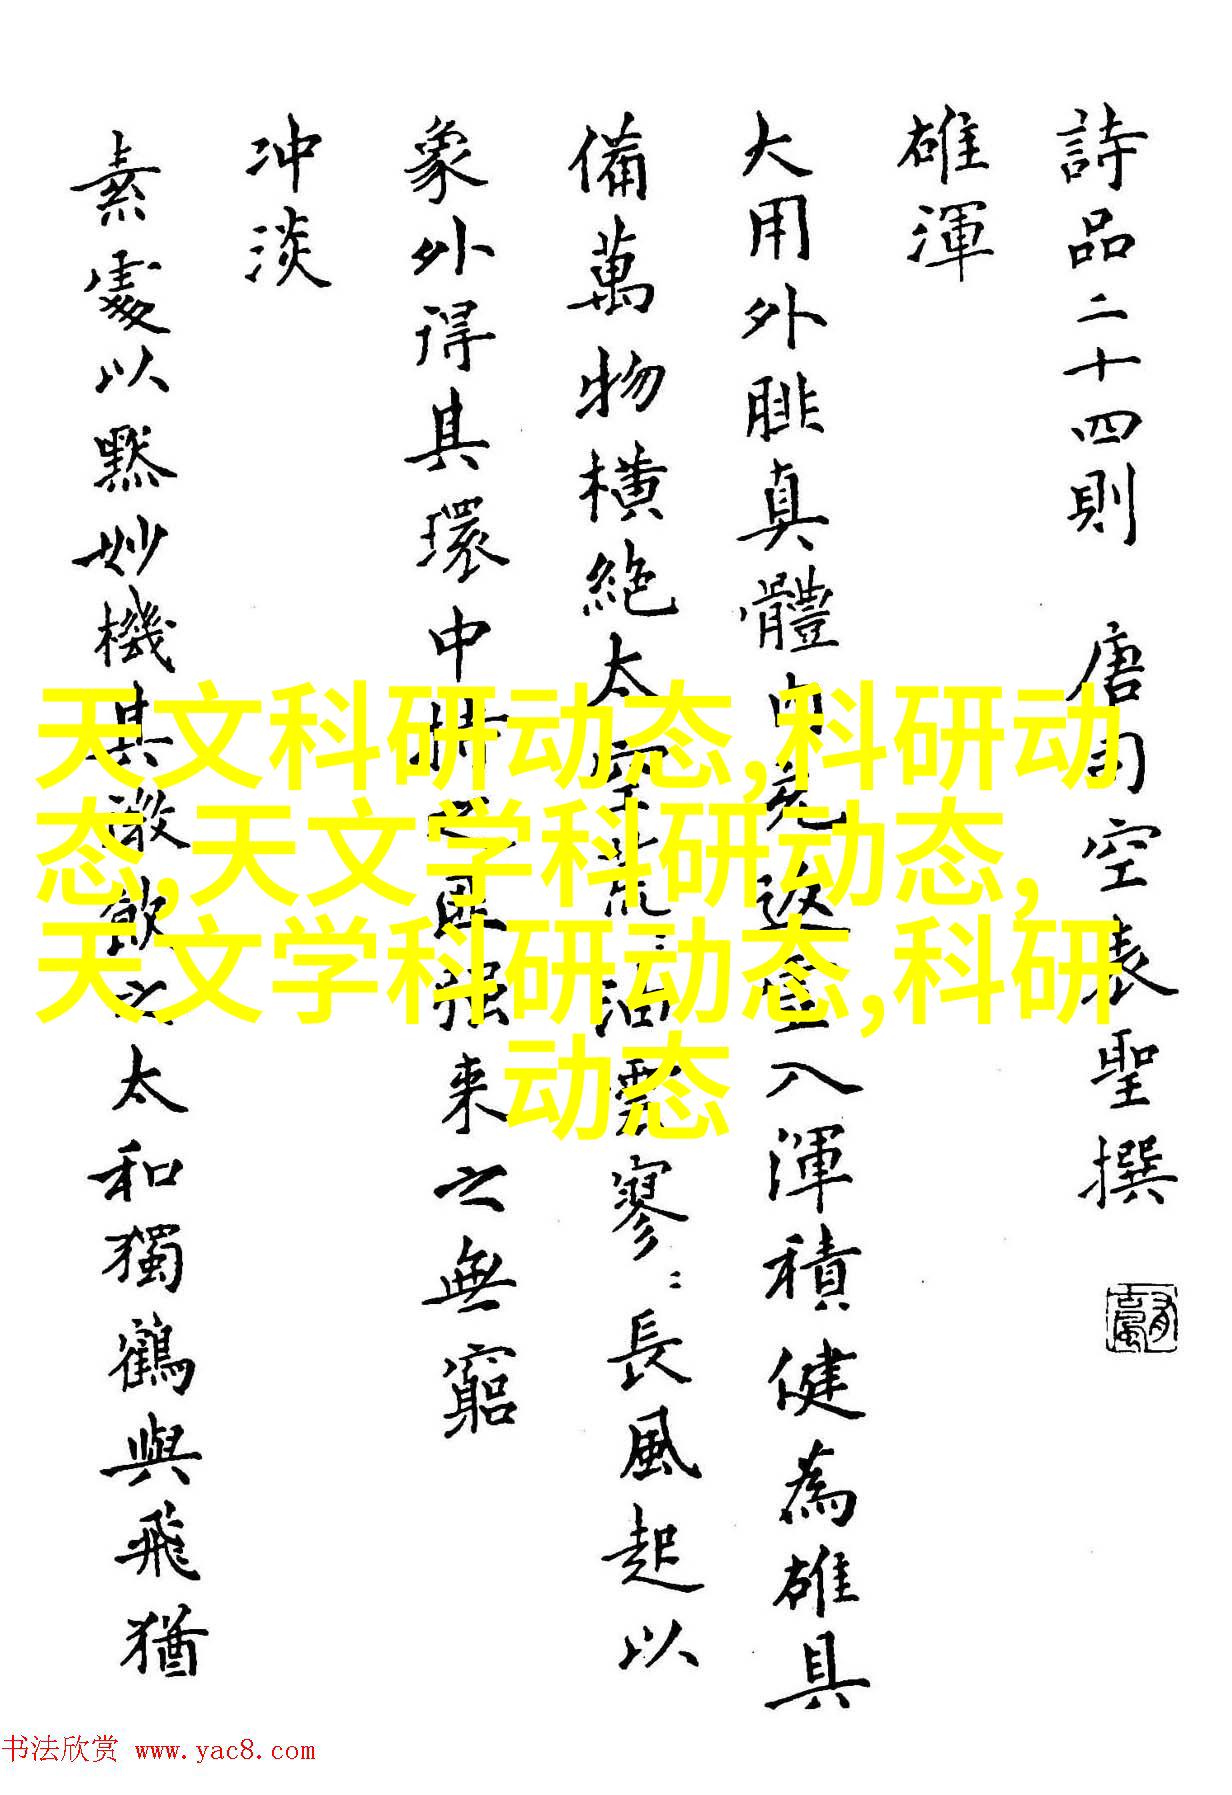 詩品二十四則 唐司空表聖撰
雄渾
大用外腓真體内充返虛入渾積健為雄具
備萬物橫絶太空荒〻油雲寥〻長風起以
象外得其環中持之匪强来之無窮
冲淡
素處以黙妙機其微飲之太和獨鶴與飛猶
天文科研动态,科研动
态,天文学科研动态,
天文学科研动态,科研
动态
书法欣赏 www.yac8.com